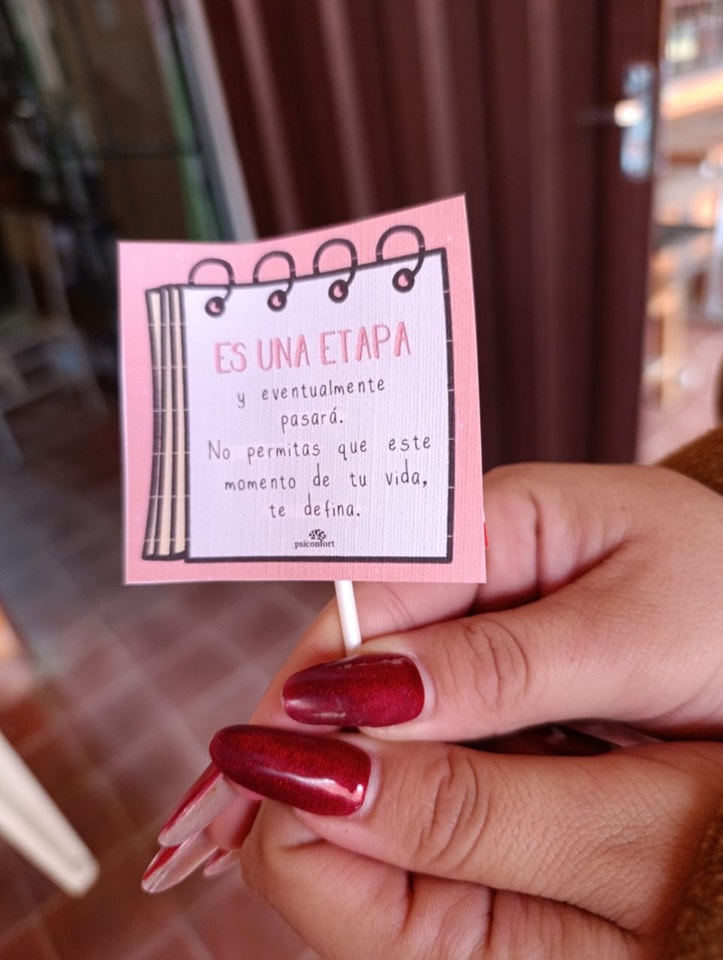 ES UNA ETAPA
y eventualmente
pasará.
No permitas que este
momento de tu vida,
te defina.
psiconfort